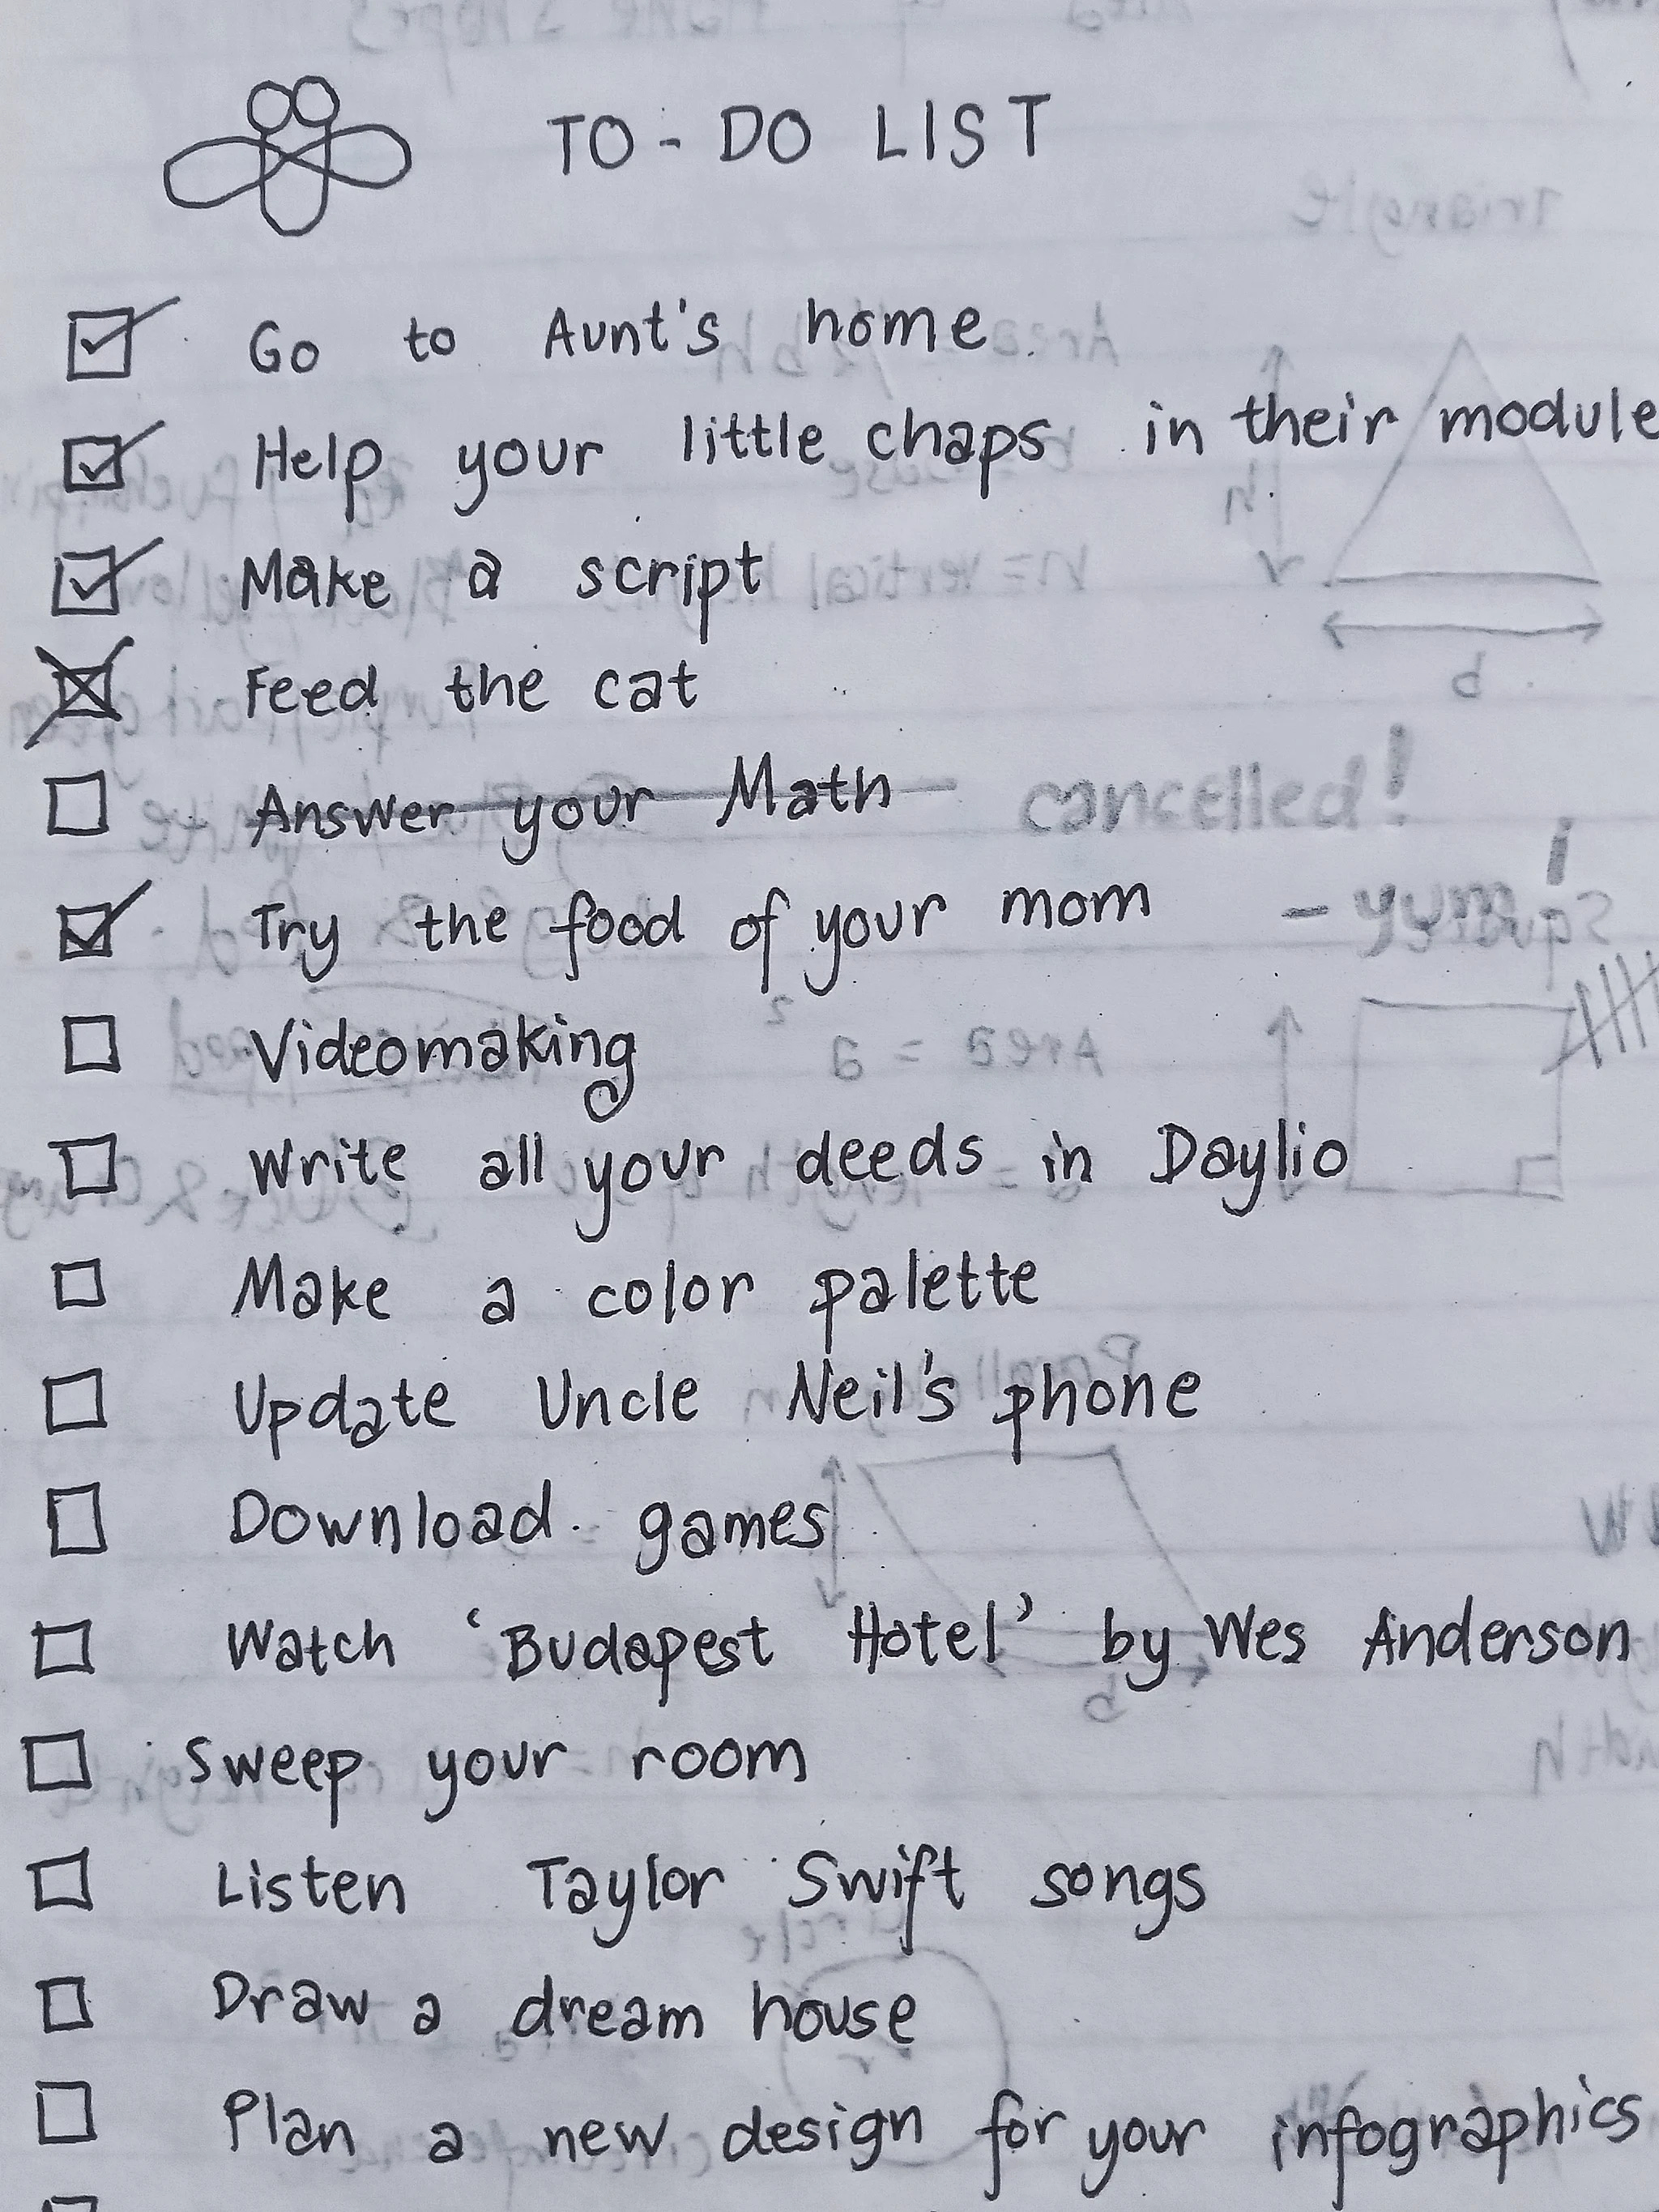 TO-DO LIST
Go to Aunt's home
Help your little chaps in their module
Make a script
Feed the cat
Answer your Math - cancelled!
Try the food of your mom - yum!
Videomaking
Write all your deeds in Daylio
Make a color palette
Update Uncle Neil's phone
Download games
Watch 'Budapest Hotel' by Wes Anderson
Sweep your room
Listen Taylor Swift songs
Draw a dream house
Plan a new design for your infographics